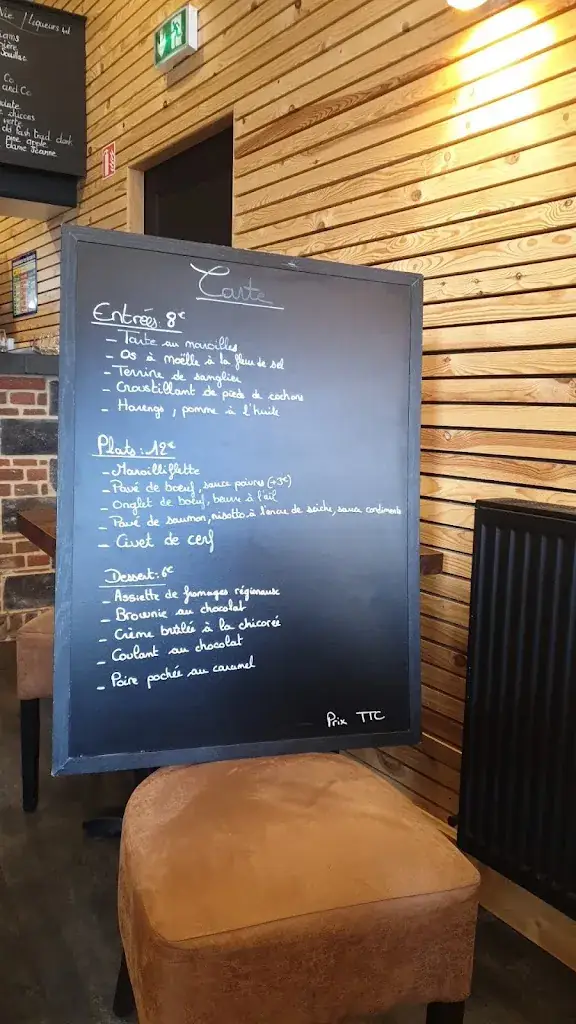 Vie / Liqueurs 4cl
and Co
pine apple
Carte
Entrées: 8€
- Tarte au maroilles
- Os à moëlle à la fleur de sel
- Terrine de sanglier
- Croustillant de pieds de cochons
- Harengs, pomme à l'huile
Plats: 12€
- Maroilliflette
- Pavé de boeuf, sauce poivres (+3€)
- Onglet de boeuf, beurre à l'ail
- Pavé de saumon, risotto à l'encre de seiche, sauce condiments
- Civet de cerf
Dessert: 6€
- Assiette de fromages régionaux
- Brownie au chocolat
- Crème brûlée à la chicorée
- Coulant au chocolat
- Poire pochée au caramel
Prix TTC